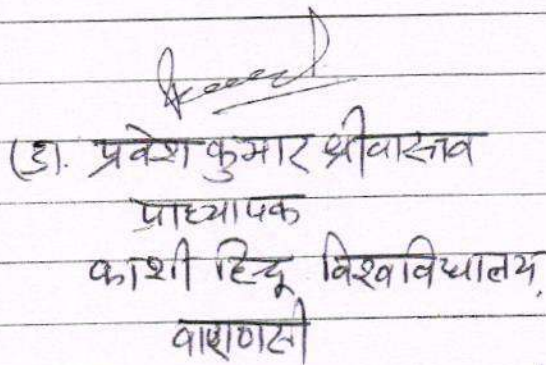 (डा. प्रवेश कुमार श्रीवास्तव
प्राध्यापक
काशी हिन्दू विश्वविद्यालय,
वाराणसी